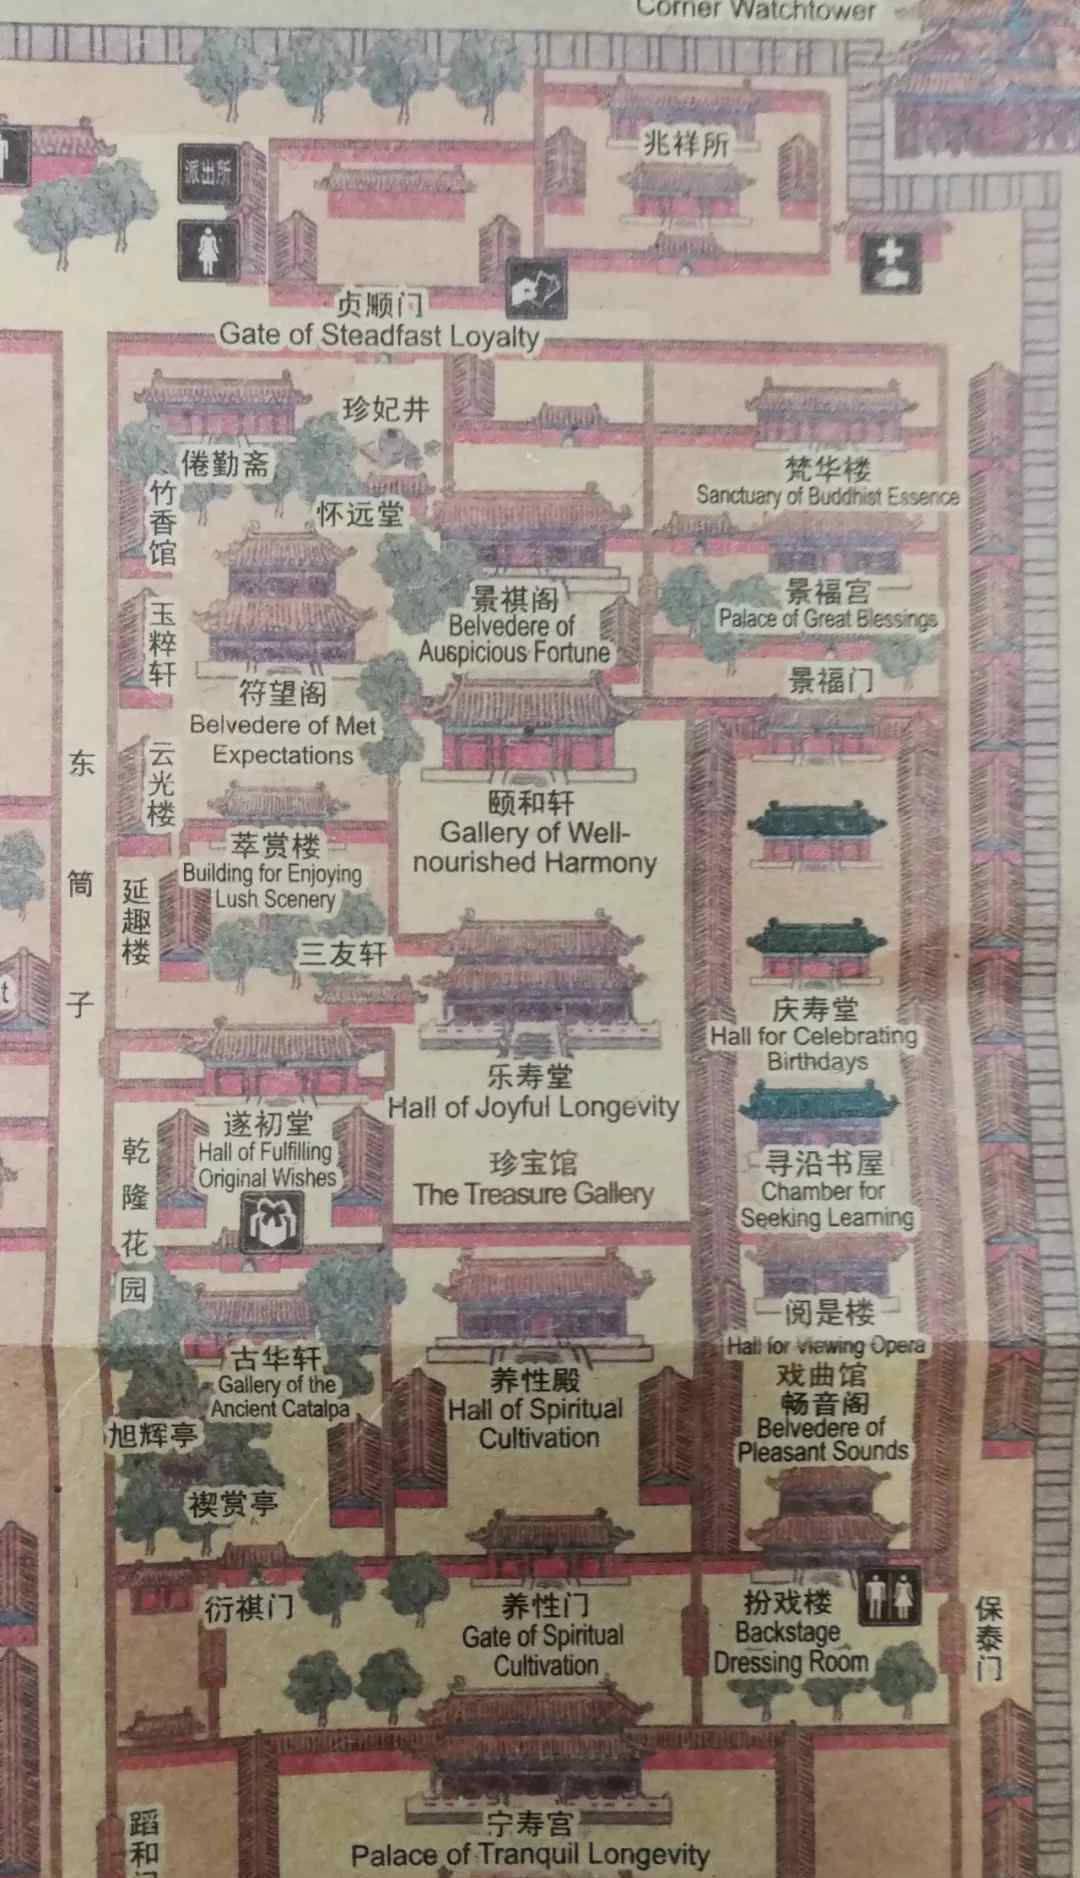 Corner Watchtower
兆祥所
派出所
贞顺门
Gate of Steadfast Loyalty
珍妃井
倦勤斋
梵华楼
Sanctuary of Buddhist Essence
竹香馆
怀远堂
景祺阁
Belvedere of
Auspicious Fortune
景福宫
Palace of Great Blessings
玉粹轩
符望阁
Belvedere of Met
Expectations
景福门
东筒子
云光楼
颐和轩
Gallery of Well-
nourished Harmony
萃赏楼
Building for Enjoying
Lush Scenery
延趣楼
三友轩
t
庆寿堂
Hall for Celebrating
Birthdays
乐寿堂
Hall of Joyful Longevity
遂初堂
Hall of Fulfilling
Original Wishes
乾隆花园
珍宝馆
The Treasure Gallery
寻沿书屋
Chamber for
Seeking Learning
阅是楼
Hall for Viewing Opera
古华轩
Gallery of the
Ancient Catalpa
养性殿
Hall of Spiritual
Cultivation
戏曲馆
畅音阁
Belvedere of
Pleasant Sounds
旭辉亭
禊赏亭
衍祺门
养性门
Gate of Spiritual
Cultivation
扮戏楼
Backstage
Dressing Room
保泰门
宁寿宫
Palace of Tranquil Longevity
蹈和门